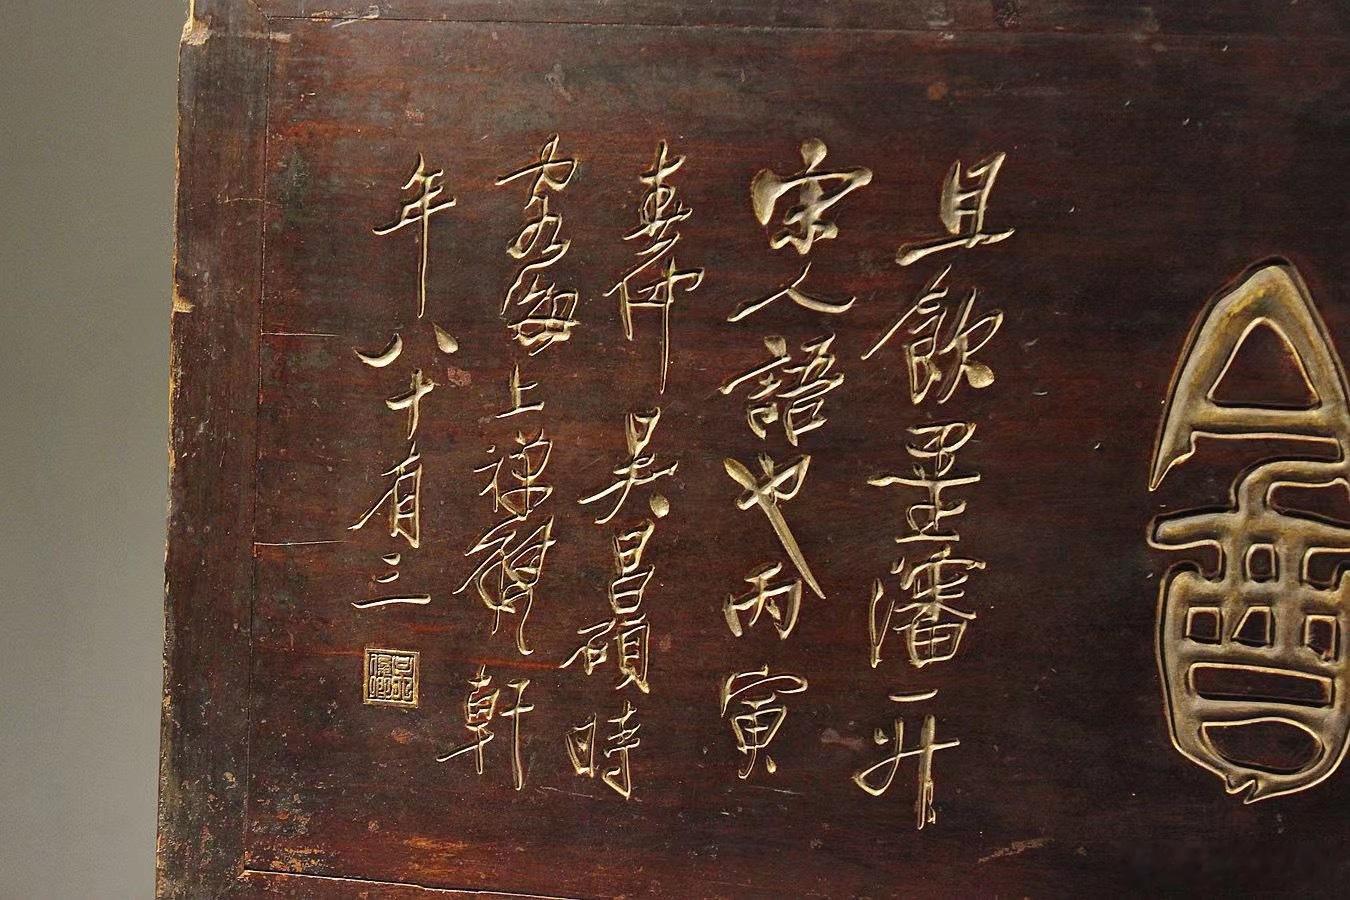 會
且飲墨瀋一升
宋人語也丙寅
春仲吳昌碩時
客海上禪甓軒
年八十有三